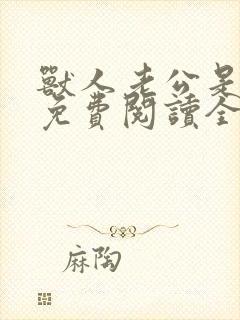 獸人老公是
免費閱讀全
麻陶